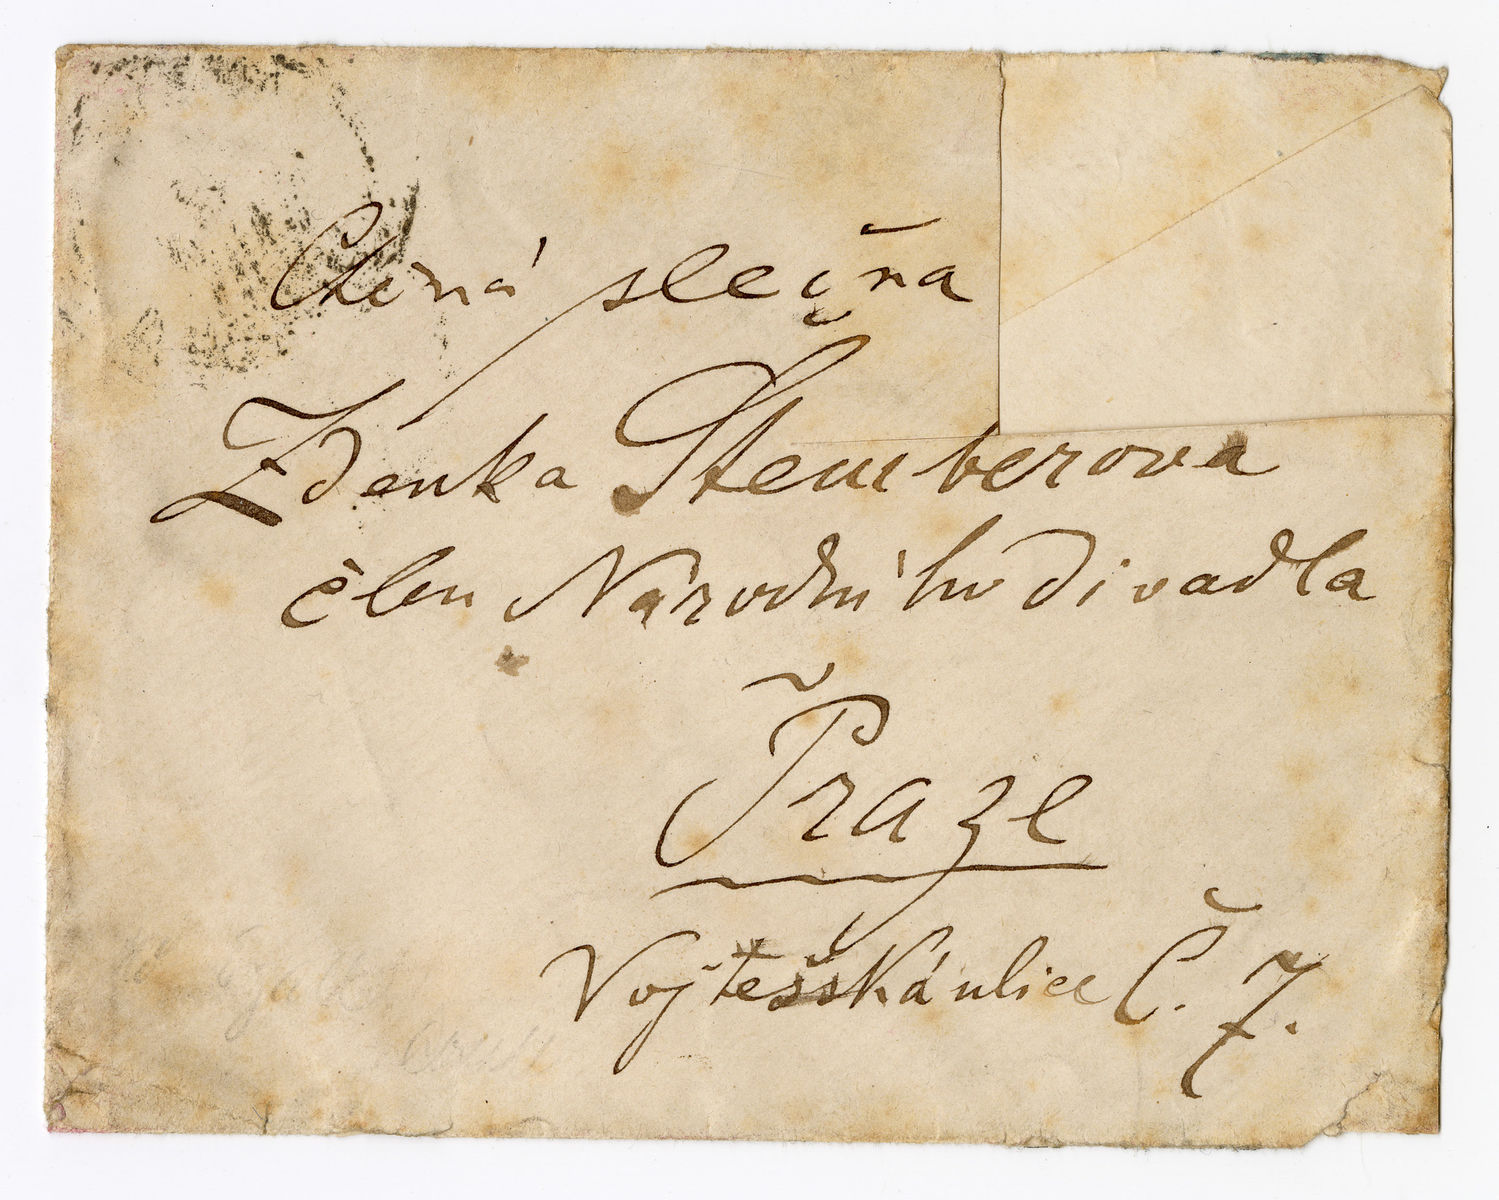 Ctěná slečna
Zdenka Štemberova
člen Národního divadla
Praze
Vojtešská ulice Č. 7.